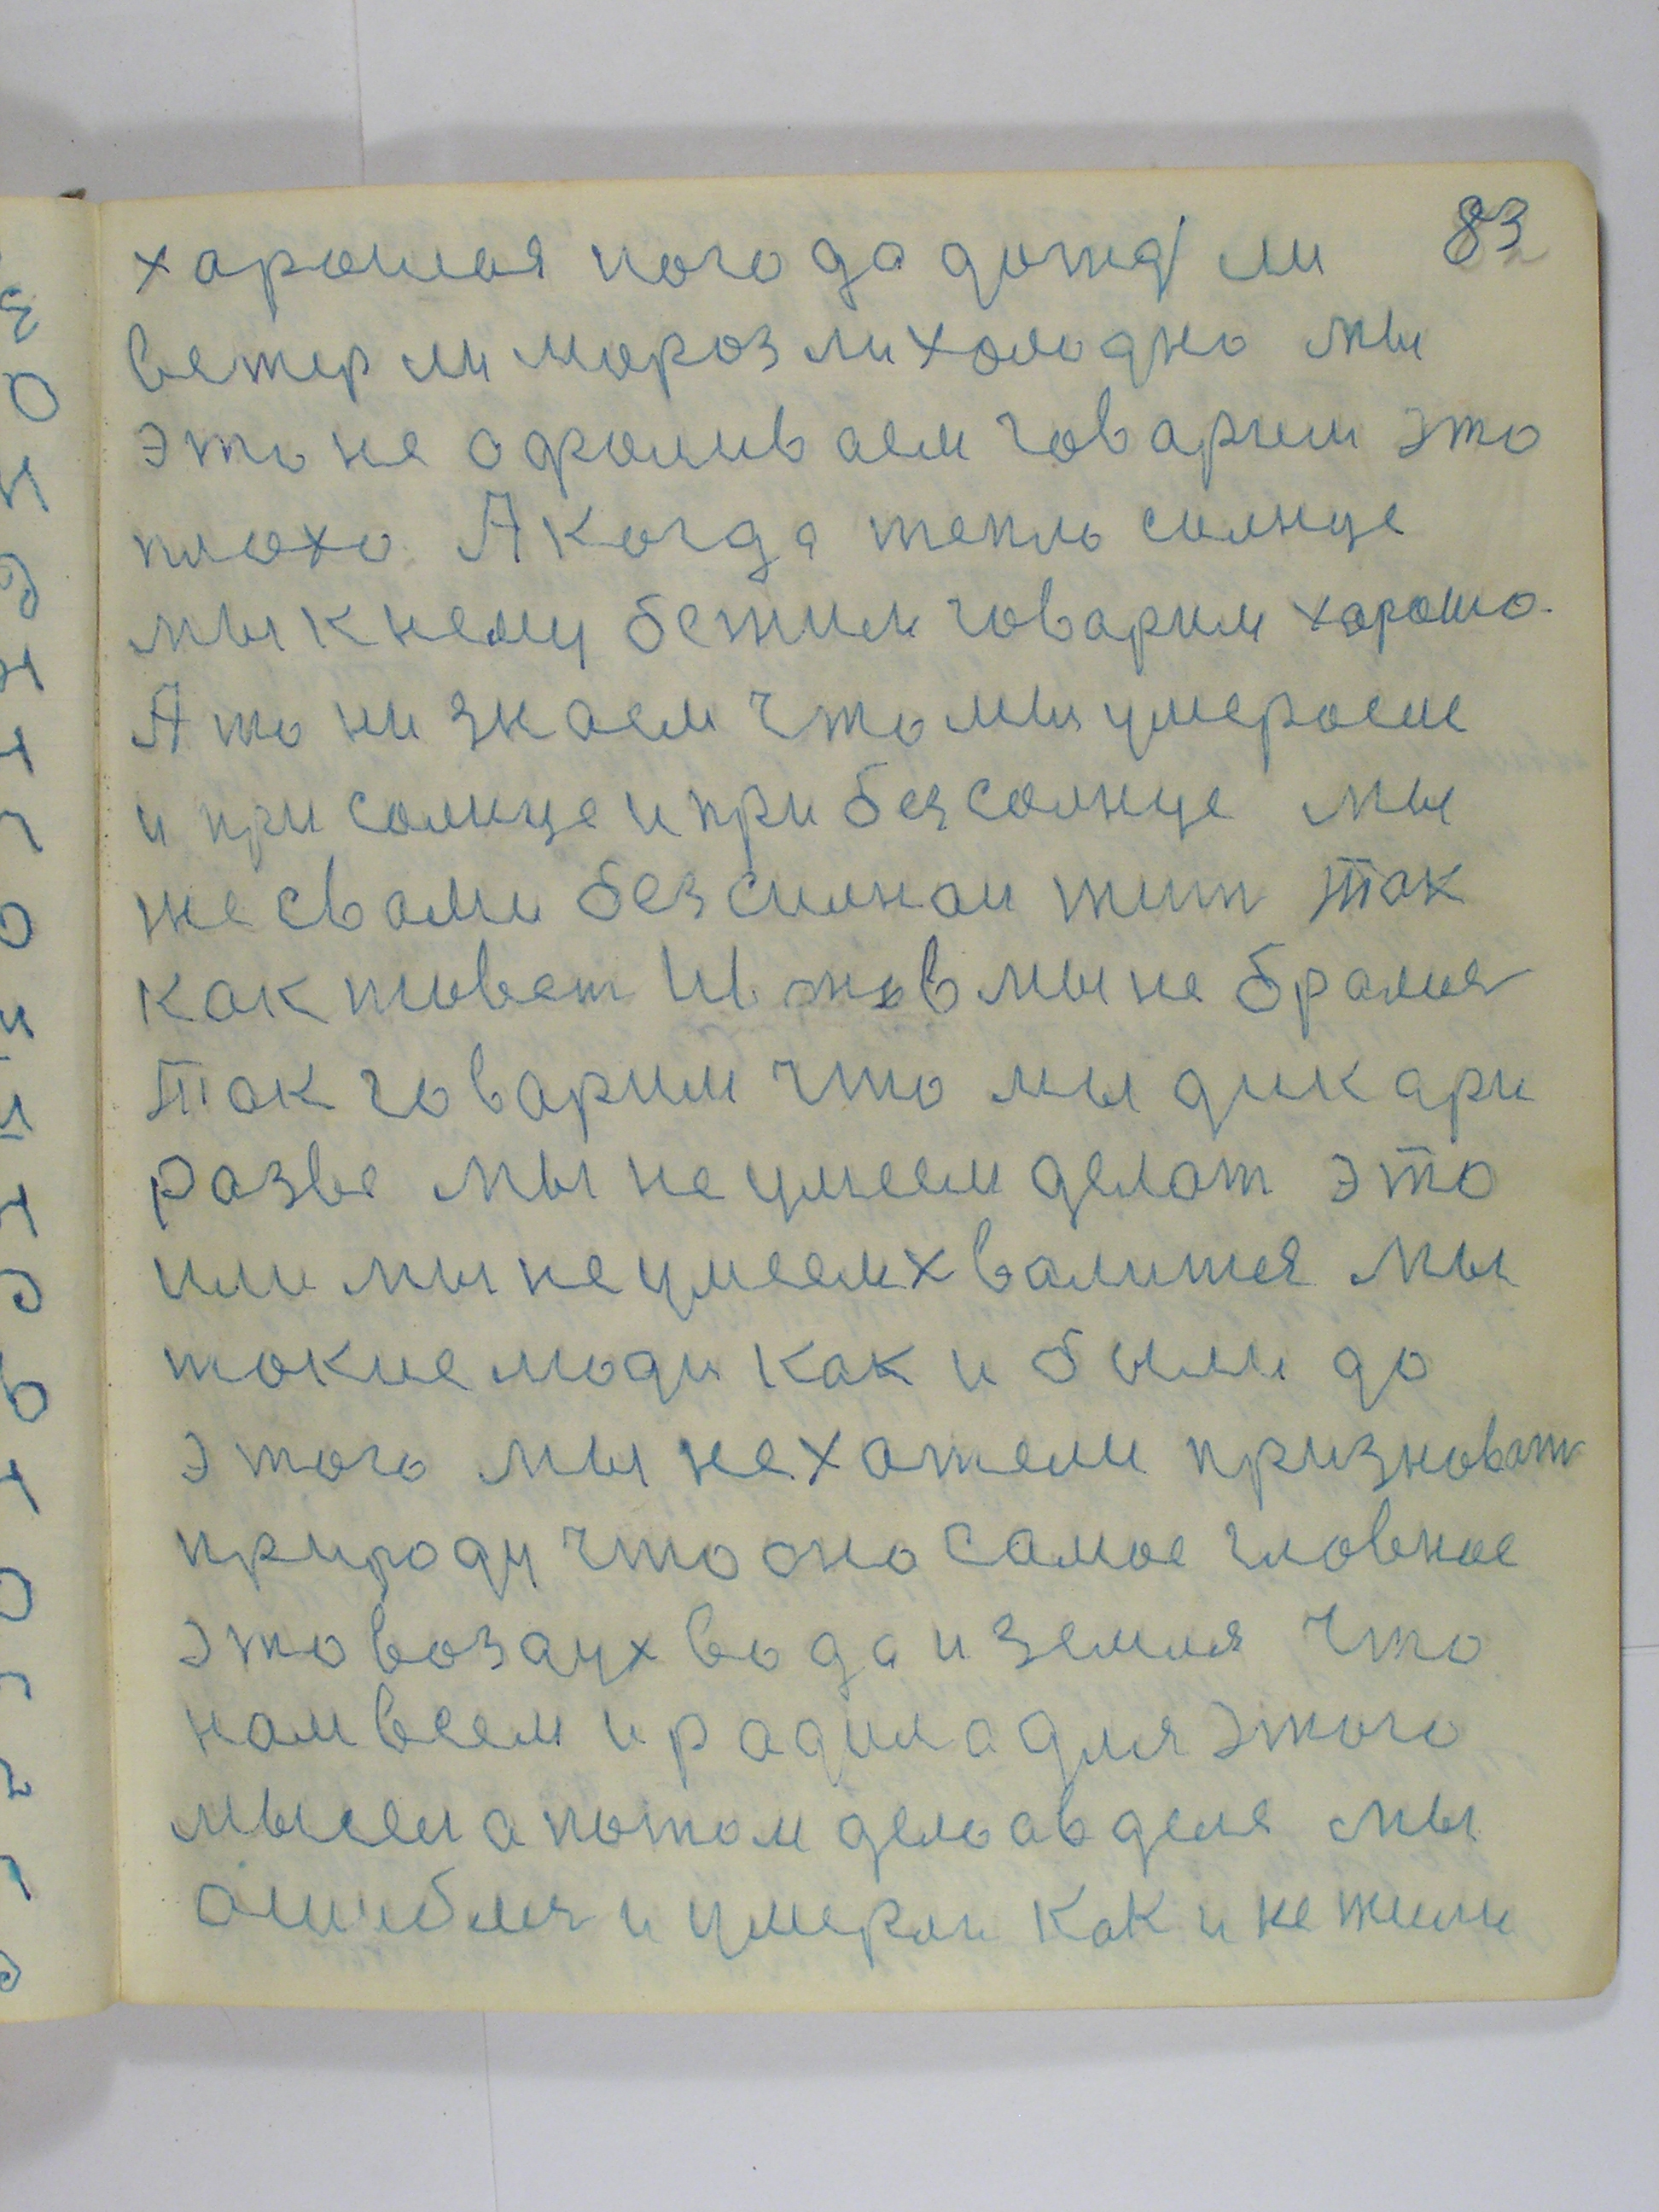 83
харошая погода дожд ли
ветер ли мороз ли холодно мы
это не офоливаем говарим это
плохо. А когда тепло солнце
мы к нему бежим говарим хорошо.
А то ни знаем что мы умераем
и при солнце и при без солнце мы
же свами безсилнаи жит так
как живет мы не бралися
так говарим что мы дикари
разве мы не умеем делат это
или мы не умеем хвалится мы
такие люди как и были до
этого мы не хатели призноват
природу что оно самое гловное
это воздух вода и земля что
нам всем и радила для этого
мысел а потом дело ав деле мы
ошиблис и умерли как и не жили